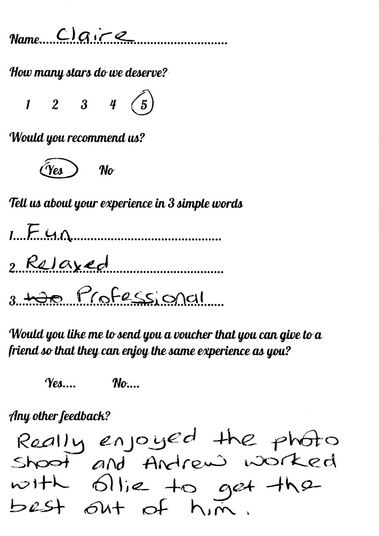 Name....Claire....................
How many stars do we deserve?
1 2 3 4 5
Would you recommend us?
Yes No
Tell us about your experience in 3 simple words
1...Fun..........................................
2...Relaxed..................................
3... Professional.....
Would you like me to send you a voucher that you can give to a
friend so that they can enjoy the same experience as you?
Yes.... No....
Any other feedback?
Really enjoyed the photo
shoot and Andrew worked
with Ollie to get the
best out of him.